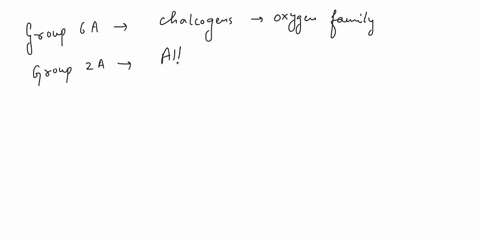 Group 6A → chalcogens → oxygen family
Group 2A → All